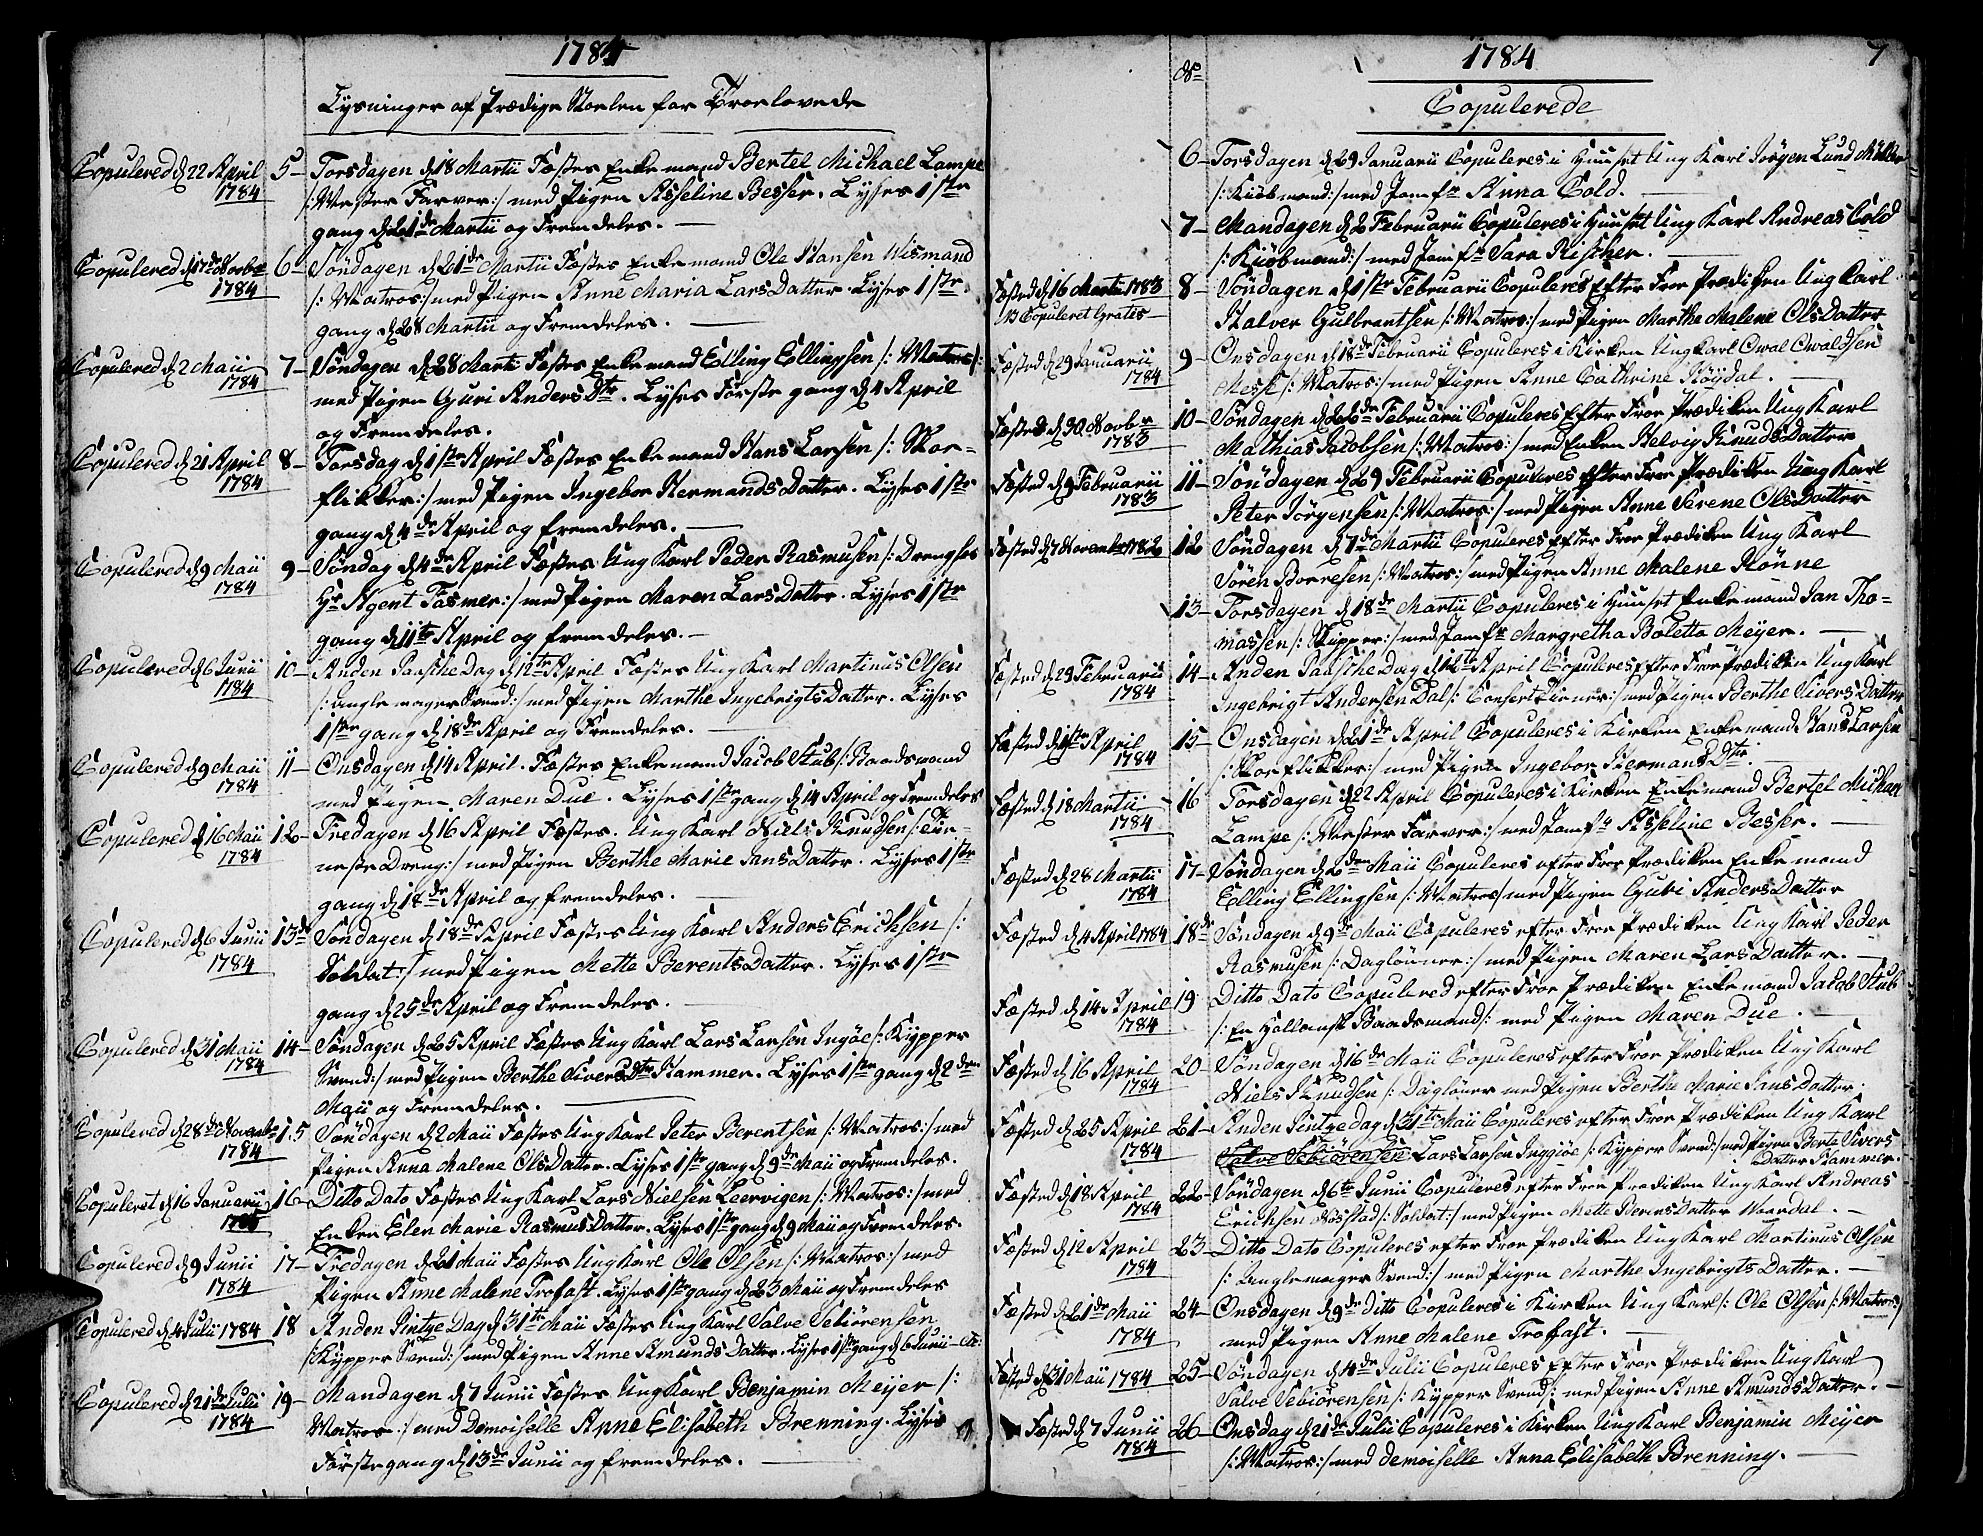 1784
Lysninger af Prædige Stoelen for Troelovede
Copulered d 22 April 1784
5 - Torsdagen d 18 Martii Fæstes Enkemand Bertel Michael Lampe
/: Mester Farver :/ med Pigen Asseline Besser. Lyses 1ste
gang d 21de Martii og Fremdeles.
Copulered d 17de Novbr 1784
6 - Søndagen d 21de Martii Fæstes Enkemand Ole Hansen Wismand
/: Matros :/ med Pigen Anne Maria Lars Datter. Lyses 1ste
gang d 28 Martii og Fremdeles.
Copulered d 2 Maii 1784
7 - Søndagen d 28 Marti Fæstes Enkemand Elling Ellingsen /: Matros :/
med Pigen Guri Anders Dtr. Lyses Første gang d 4 April
og Fremdeles.
Copulered d 21 April 1784
8 - Torsdag d 1ste April Fæstes Enkemand Hans Larsen /: Skoe-
flikker :/ med Pigen Ingebor Hermands Datter. Lyses 1ste
gang d 4de April og fremdeles.
Copulered d 9 Maii 1784
9 - Søndag d 4de April Fæstes Ung Karl Peder Rasmusen /: Dreng hos
Hr Agent Fasmer :/ med Pigen Maren Lars Datter. Lyses 1ste
gang d 11te April og fremdeles.
Copulered d 6 Junii 1784
10 - Anden Paasche Dag d 12te April Fæstes Ung Karl Martinus Olsen
/: Angle mager Svend :/ med Pigen Marthe Ingebrigts Datter. Lyses
1ste gang d 18de April og Fremdeles.
Copulered d 9 Maii 1784
11 - Onsdagen d 14 April. Fæstes Enkemand Jacob Stub /: Baadsmand
med Pigen Maren Due. Lyses 1ste gang d 14 April og Fremdeles
Copulered d 16 Maii 1784
12 - Fredagen d 16 April Fæstes. Ung Karl Niels Knudsen /: Tie-
neste Dreng :/ med Pigen Berthe Marie Jans Datter. Lyses 1ste
gang d 18de April og fremdeles.
Copulered d 6 Junii 1784
13de Søndagen d 18de April Fæstes Ung Karl Anders Erichsen /:
Soldat :/ med Pigen Mette Berents Datter. Lyses 1ste
gang d 25de April og Fremdeles.
Copulered d 31 Maii 1784
14 - Søndagen d 25 April Fæstes Ung Karl Lars Larsen Ingøe /: Kypper
Svend :/ med Pigen Berthe Sivers Dtr Hammer. Lyses 1ste gang d 2den
Maii og Fremdeles.
Copulered d 28de Novembr 1784
15 Søndagen d 2 Maii Fæstes Ung Karl Peter Berentsen /: Matros :/ med
Pigen Anna Malene Ols Datter. Lyses 1ste gang d 9de Maii og Fremdeles.
Copuleret d 16 Januarii
16 - Ditto Dato Fæstes Ung Karl Lars Nielsen Leervigen /: Matros :/ med
Enken Elen Marie Rasmus Datter. Lyses 1ste gang d 9 Maii og Fremdeles.
Copulered d 9 Junii 1784
17 - Fredagen d 21 Maii Fæstes Ung Karl Ole Olsen /: Matros :/ med
Pigen Anne Malene Trofast. Lyses 1ste gang d 23 Maii og Fremdeles
Copulered d 4 Julii 1784
18 Anden Pintze Dag d 31te Maii Fæstes Ung Karl Salve Sebiørensen
/: Kypper Svend :/ med Pigen Anne Amunds Datter. Lyses 1ste gang d 6 Junii - etc:
Copulered d 21de Julii 1784
19 - Mandagen d 7 Junii Fæstes Ung Karl Benjamin Meyer /:
Matros :/ med Demoiselle Anne Elisabeth Brenning. Lyses
Første gang d 13de Junii og fremdeles.
1784
7
No
Copulerede
6 - Torsdagen d 29 Januarii Copuleres i Huuset Ung Karl Jørgen Lund Møller
/: Kiøbmand :/ med Jomfr Anna Cold.
7 - Mandagen d 2 Februarii Copuleres i Huuset Ung Karl Andreas Cold
/: Kiøbmand :/ med Jomfr Sara Rischer.
Fæsted d 16 Martii 1783
NB Copuleret Gratis
8 - Søndagen d 1ste Februarii Copuleres Efter Froe Prædiken Ung Karl
Halver Gulbrantsen /: Matros :/ med Pigen Marthe Malene Ols Datter
Fæsted d 29 Januarii 1784
9 - Onsdagen d 18de Februarii Copuleres i Kirken Ung Karl Owal Owaldsen
/: Matros :/ med Pigen Anne Cathrine Høydal.
Fæsted d 30 Novbr 1783
10 - Søndagen d 22de Februarii Copuleres Efter Froe Prædiken Ung Karl
Mathias Jacobsen /: Matros :/ med Enken Helvig Knuds Datter
Fæsted d 9 Februarii 1783
11 - Søndagen d 29 Februarii Copuleres efter Froe Prædiken Ung Karl
Peter Jørgensen /: Matros :/ med Pigen Anne Serene Ols Datter
Fæsted d 7 November 1782
12 Søndagen d 7de Martii Copuleres Efter Froe Prædiken Ung Karl
Søren Borresen /: Matros :/ med Pigen Anne Malene Rønne
13 - Torsdagen d 18de Martii Copuleres i Huuset Enkemand Jan Tho-
massen /: Skipper :/ med Jomfr Margretha Boletta Meyer.
Fæsted d 29 Februarii 1784
14 - Anden Paasche Dag d 12te April Copuleres efter Froe Prædiken Ung Karl
Ingebrigt Andersen Dal /: Consert Tiener :/ med Pigen Berthe Sivers Datter
Fæsted d 1ste April 1784
15 - Onsdagen d 21de April Copuleres i Kirken Enkemand Hans Larsen
/: Skoe flikker :/ med Pigen Ingebor Hermands Dtr.
Fæsted d 18 Martii 1784
16 Torsdagen d 22 April Copuleres i Kirken Enkemand Bertel Michael
Lampe /: Mester Farver :/ med Jomfr Asseline Besser.
Fæsted d 28 Martii 1784
17 - Søndagen d 2den Maii Copuleres efter Froe Prædiken Enkemand
Elling Ellingsen /: Matros / med Pigen Guri Anders Datter
Fæsted d 4 April 1784
18de Søndagen d 9de Maii Copuleres efter Froe Prædiken Ung Karl Peder
Rasmusen /: Dagløner :/ med Pigen Maren Lars Datter.
Fæsted d 14 April 1784
19 Ditto Dato Copulered efter Froe Prædiken Enkemand Jacob Stub
/: En Hollansk Baadsmand /: med Pigen Maren Due.
Fæsted d 16 April 1784
20 Søndagen d 16de Maii Copuleres efter Froe Prædiken Ung Karl
Niels Knudsen /: Dagløner med Pigen Berthe Marie Jans Datter.
Fæsted d 25 April 1784
21 - Anden Pintze Dag d 31te Maii Copuleres efter Froe Prædiken Ung Karl
Salve Sebiørensen Lars Larsen Inggiøe /: Kypper Svend :/ med Pigen Berte Sivers
Datter Hammer.
Fæsted d 18 April 1784
22 - Søndagen d 6te Junii Copuleres efter Froe Prædiken Ung Karl Andreas
Erichsen /: Soldat :/ med Pigen Mette Berens Datter
Fæsted d 12 April 1784
23 - Ditto Dato Copuleres efter Froe Prædiken Ung Karl Martinus Olsen
/: Anglemager Svend :/ med Pigen Marthe Ingebrigts Datter.
Fæsted d 21de Maii 1784
24 - Onsdagen d 9de Ditto Copuleres i Kirken Ung Karl /: Ole Olsen /: Matros :/
med Pigen Anne Malene Trofast.
Fæsted d 31 Maii 1784
25 - Søndagen d 4de Julii Copuleres Efter Froe Prædiken Ung Karl
Salve Sebiørensen /: Kypper Svend /: med Pigen Anne Amunds Datter.
Fæsted d 7 Junii 1784
26 - Onsdag d 21de Julii Copuleres i Kirken Ung Karl Benjamin Meyer
/: Matros :/ med Demoiselle Anna Elisabeth Brenning.